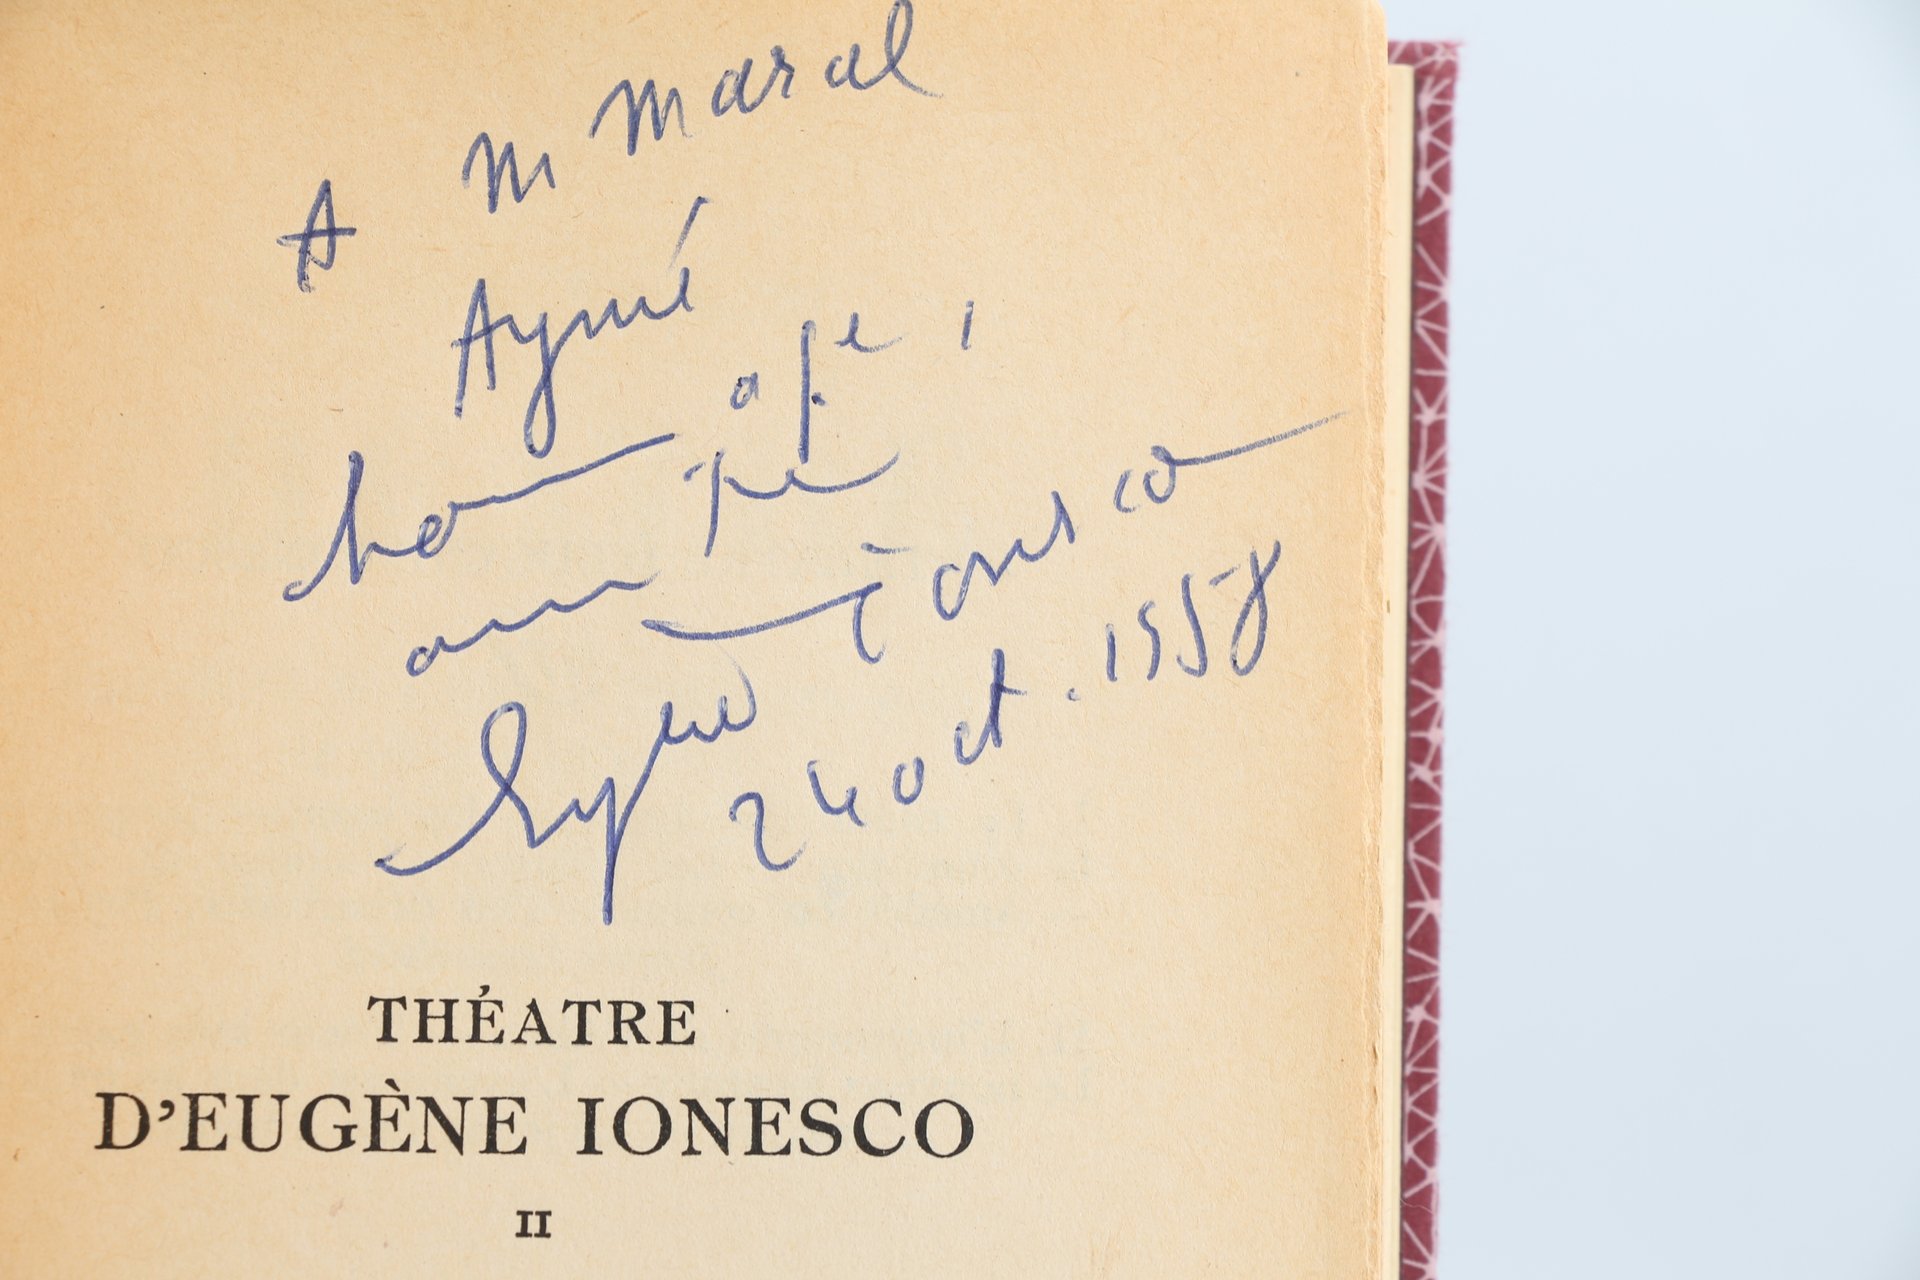 A M Marcel
Aymé
hommage,
amitié
Eugène Ionesco
24 oct. 1958
THÉATRE
D'EUGÈNE IONESCO
II